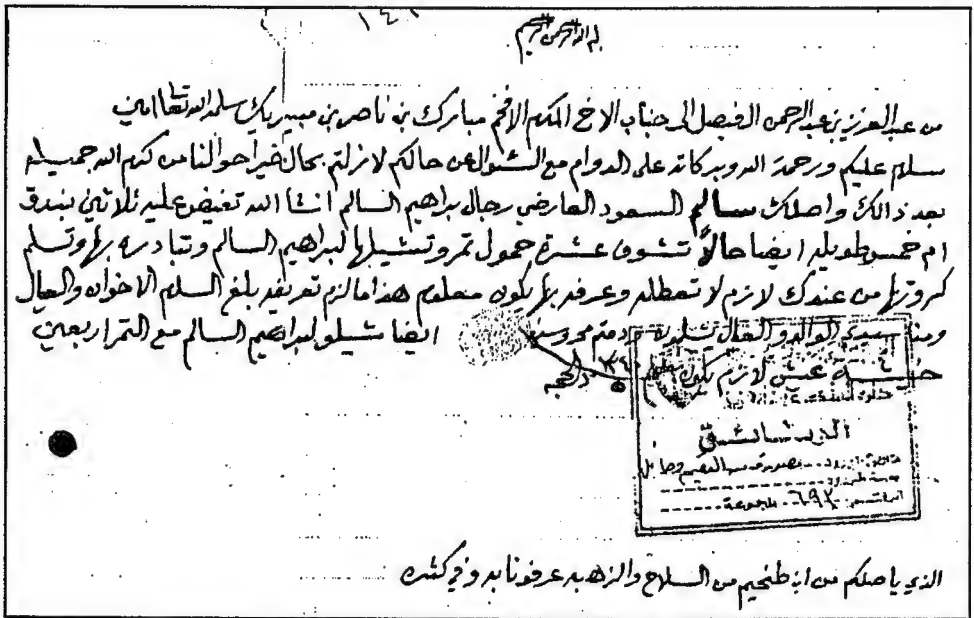 ١٤١
بسم الله الرحمن الرحيم
من عبدالعزيز بن عبدالرحمن الفيصل الى جناب الاخ المكرم الافخم مبارك بن ناصر بن مبيريك سلمه الله تعالى امين
سلام عليكم ورحمة الله وبركاته على الدوام مع السئوال عن حالكم لازلتم بحال خير احوالنا من كرم الله جميله
بعد ذالك واصلك سالم السعود العارضي رجال براهيم السالم انشا الله تغبضوه عليه ثلاثين بندق
ام خمس طويله ايضا حالاً تشوف عشرة حمول تمر وتشيلها لبراهيم السالم وتبادره بها وتسلم
كروتها من عندك لازم لا تعطله وعرفه بها يكون معلوم هذا مالزم تعريفه بلغ السلام الاخوان والعيال
ومنا سيدي الوالد والعيال يسلمون ودمتم محروسين ايضا شيلو لبراهيم السالم مع التمر اربعين
عيش لازم يكون
ذالحجه
القصيم وحايل
٦٩٢ مجموعة
الذي ياصلكم من ابن طخيم من السلاح والزهبه عرفونا به وفي كثره